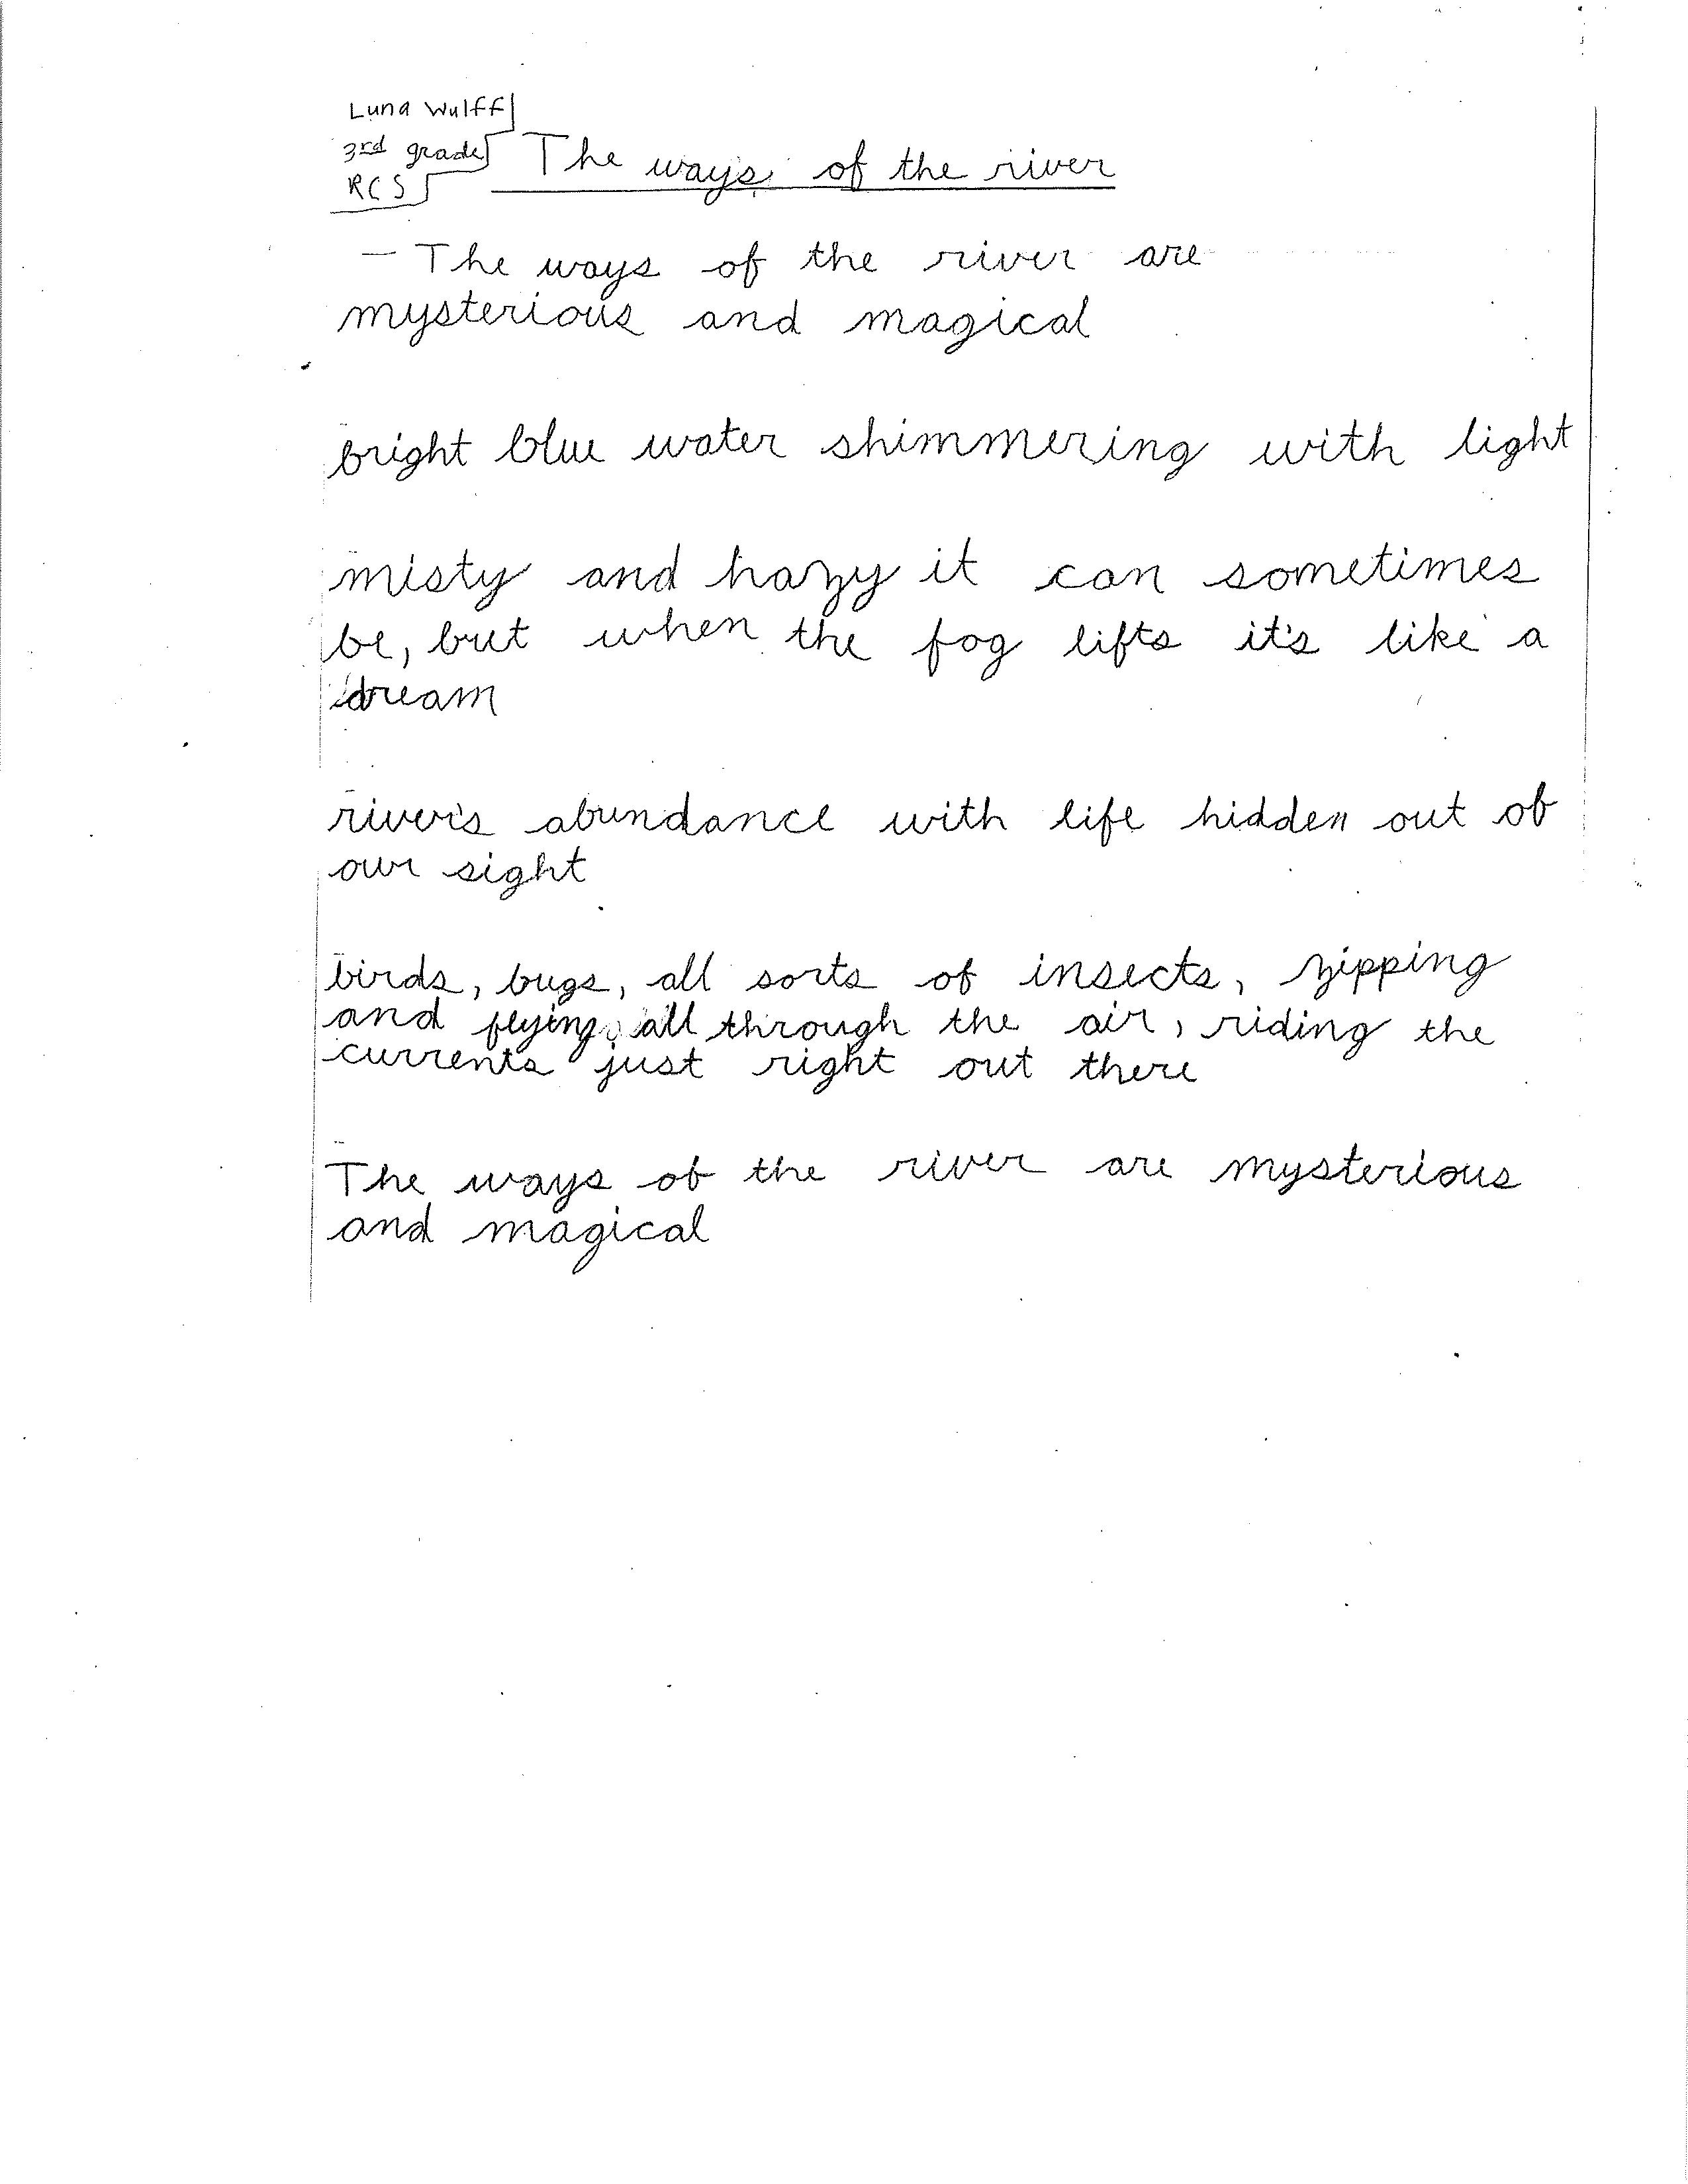 Luna Wulff
3rd grade
RCS
The ways of the river
- The ways of the river are
mysterious and magical
bright blue water shimmering with light
misty and hazy it can sometimes
be, but when the fog lifts it's like a
dream
river's abundance with life hidden out of
our sight
birds, bugs, all sorts of insects, zipping
and flying, all through the air, riding the
currents just right out there
The ways of the river are mysterious
and magical